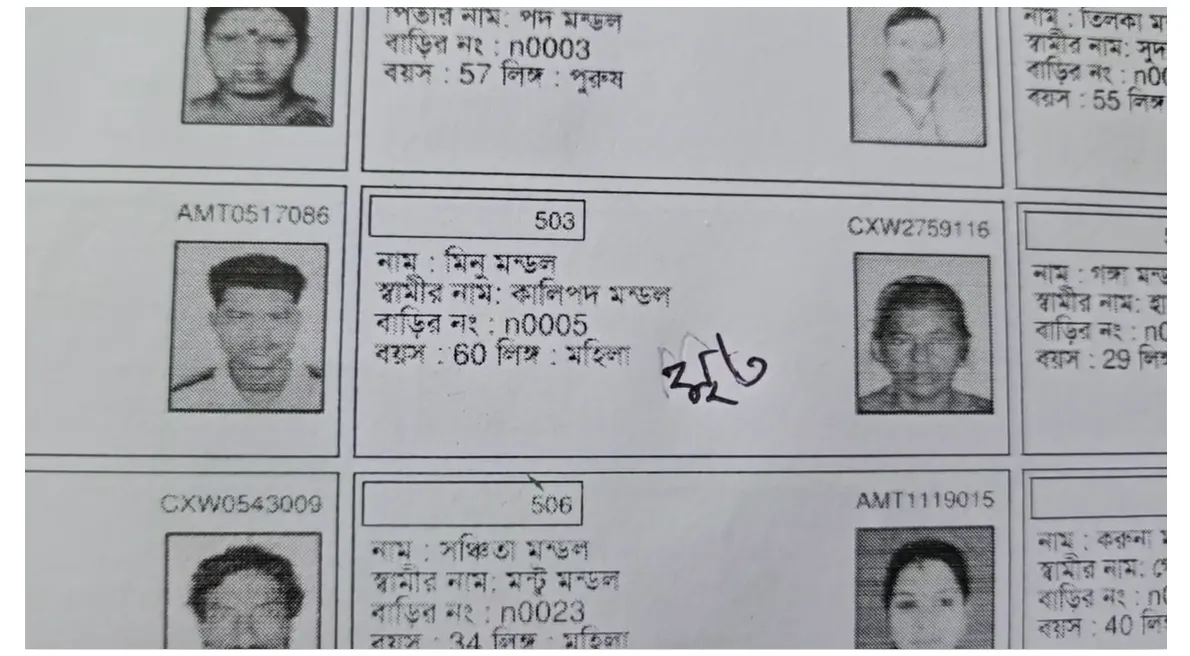 পিতার নাম: পদ মন্ডল
বাড়ির নং : n0003
বয়স : 57 লিঙ্গ : পুরুষ
নাম : তিলকা
স্বামীর নাম:
বাড়ির নং :
বয়স : 55 লিঙ্গ
AMT0517086
503
CXW2759116
নাম : মিনু মন্ডল
স্বামীর নাম: কালিপদ মন্ডল
বাড়ির নং : n0005
বয়স : 60 লিঙ্গ : মহিলা
মৃত
নাম : গঙ্গা
স্বামীর নাম:
বাড়ির নং :
বয়স : 29
CXW0543009
506
AMT1119015
নাম : সঞ্চিতা মন্ডল
স্বামীর নাম: মন্টু মন্ডল
বাড়ির নং : n0023
বয়স : 34 লিঙ্গ : মহিলা
নাম : করুনা
স্বামীর নাম:
বাড়ির নং :
বয়স : 40